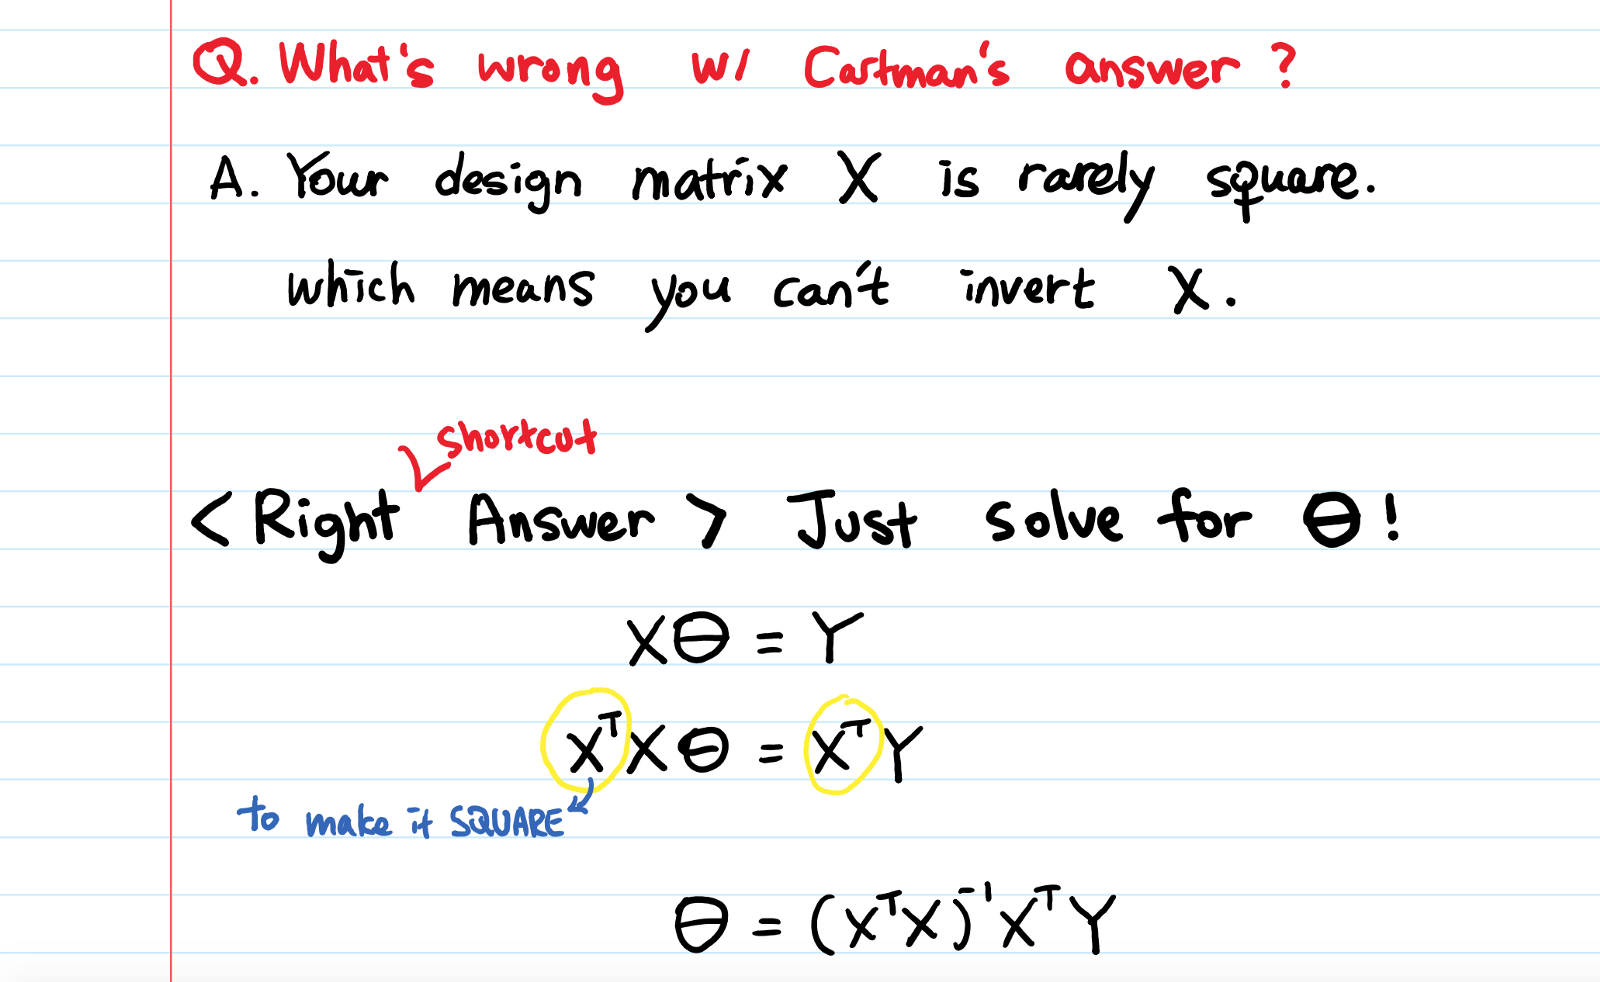 Q. What's wrong w/ Cartman's answer?
A. Your design matrix X is rarely square.
which means you can't invert X.
shortcut
<Right Answer> Just solve for θ!
Xθ = Y
XᵀXθ = XᵀY
to make it SQUARE
θ = (XᵀX)⁻¹XᵀY